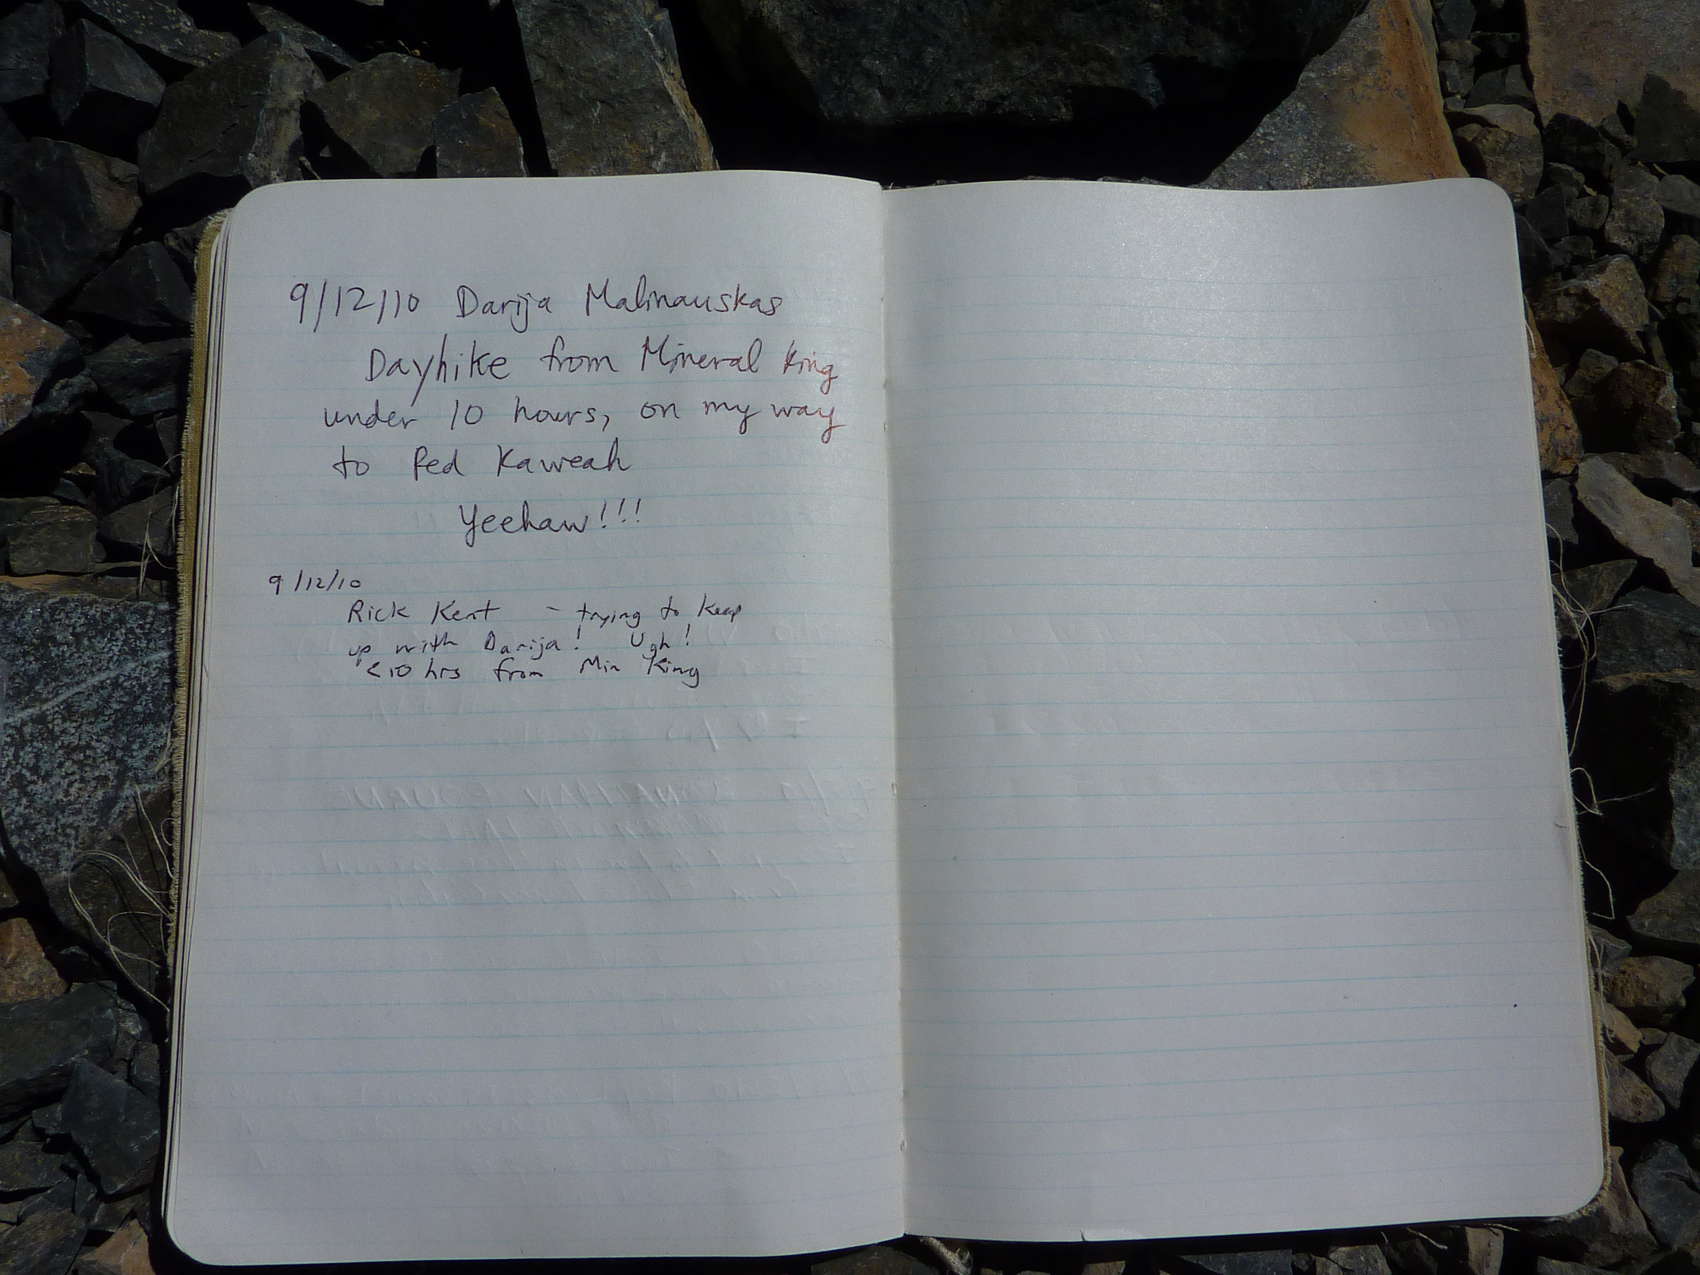 9/12/10 Darija Malinauskas
Dayhike from Mineral King
under 10 hours, on my way
to Red Kaweah
Yeehaw!!!
9/12/10
Rick Kent - trying to keep
up with Darija! Ugh!
<10 hrs from Min King